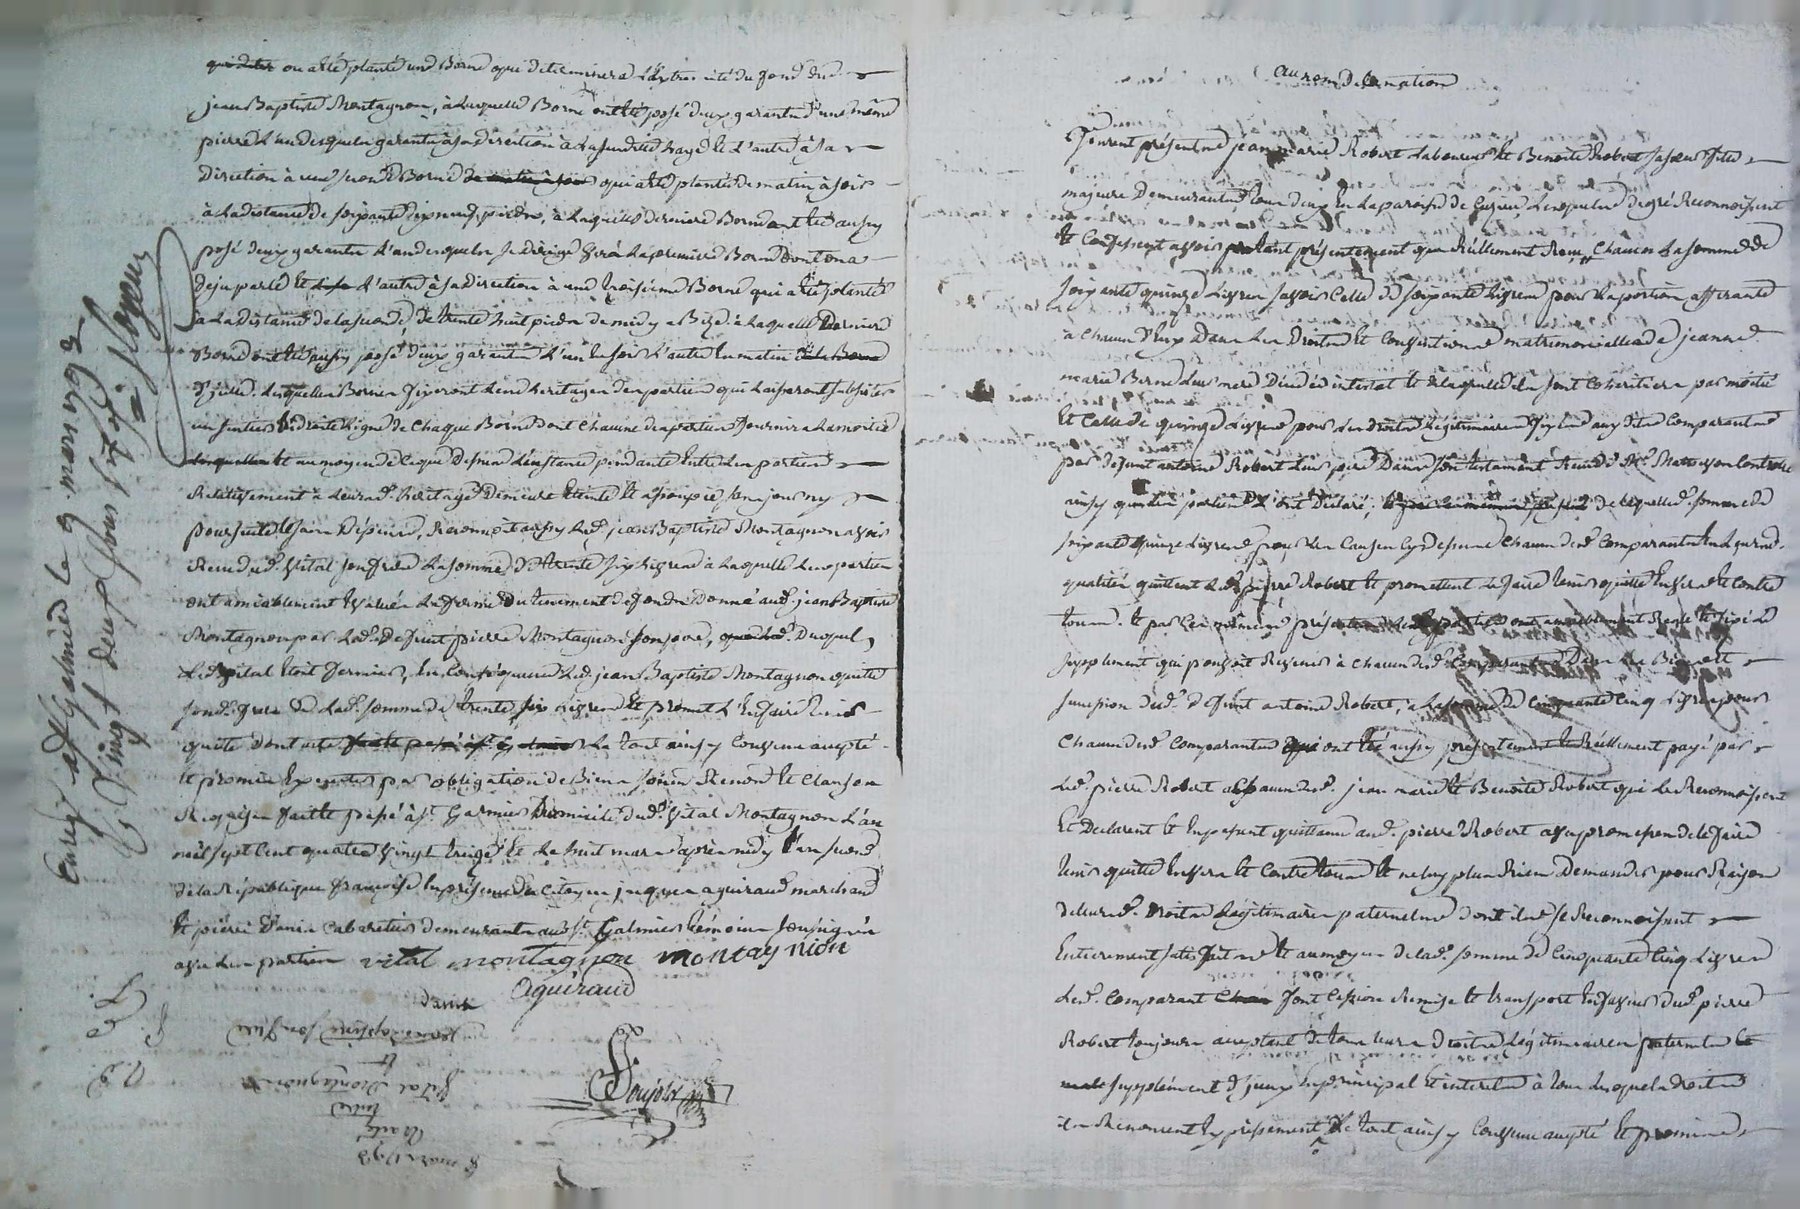 ou a été planté une Borne qui determinera l'extremité du fond dud
jean Baptiste Montagnon, à laquelle Borne ont été posé deux garants d'une même
pierre l'un desquels garants à sa direction à la susdite haye et l'autre à sa
direction à une seconde Borne qui a été planté de matin à soir
à la distance de soixante dix neuf pieds, à laquelle derniere Borne ont été aussy
posé deux garants l'un desquels se dirige vers la premiere Borne dont on a
deja parlé et l'autre à sa direction à une troisieme Borne qui a été planté
à la distance de la seconde de trente huit pieds de midy a Bize à laquelle derniere
Borne ont été aussy posé deux garants l'un en soir l'autre en matin
d'icelle. lesquelles Bornes fixeront les héritages des parties qui laisseront subsister
un sentier en droite ligne de chaque Borne dont chacune des parties fournira la moitié
et au moyen de ce que dessus l'instance pendante entre les parties
relativement à leursd. héritages demeure éteinte et assoupie sans jour ny
poursuite et sans dépens, reconnoit aussy led. jean Baptiste Montagnon avoir
reçu dud. vital son frere la somme de trente six livres à laquelle les parties
ont amiablement evalués la ferme du tenement de fonds donné aud. jean Baptiste
Montagnon par led. defunt pierre Montagnon son pere, duquel
led. vital étoit fermier, en conséquence led. jean Baptiste Montagnon quitte
sond. frere de lad. somme de trente six livres et promet l'en faire tenir
quitte dont acte le tout ainsy convenu accepté
et promis executer par obligation de Biens soumis renoncé et clauses
requises fait et passé à st. Galmier domicile dud. vital Montagnon l'an
mil sept cent quatre vingt treize et le huit mars après midy l'an second
de la République françoise en présence des citoyens jacques aguiraud marchand
et pierre Danis cabaretier demeurants aud. st. Galmier témoins soussignés
avec les parties vital montagnon montagnion
Danis aguiraud
Enreg. à st Galmier le 9 mars 1793
vingt deux sous
8 mars 1793
traité
entre
Vital Montagnon
et
Jean Baptiste son frere
au nom de la nation
Furent présents jean marie Robert laboureur et Benoite Robert sa soeur fille
majeure demeurants tous deux en la paroisse de Cuzieu, lesquels de gré reconnoissent
et confessent avoir tant présentement que réellement reçu chacun la somme de
soixante quinze livres savoir celle de soixante livres pour la portion afferante
à chacun d'eux dans les droits et constitions matrimonialles de jeanne
marie Berne leur mere décédée intestat et de laquelle ils sont coheritiers par moitié
Et celle de quinze livres pour les droits légitimaires fixés aux dits comparants
par defunt antoine Robert leur pere dans son testament reçu
ainsy que les parties l'ont déclaré, de laquelle somme de
soixante quinze livres pour les causes cy dessus chacun desd. comparants en leursd.
qualités quittent led. pierre Robert et promettent le faire tenir quitte envers et contre
tous. et par ces mêmes présentes les parties ont amiablement reglé et fixé le
supplément qui pouvoit revenir à chacun desd. comparants dans les Biens et
succession dud. defunt antoine Robert, à la somme de cinquante cinq livres pour
chacun desd. comparants qui ont été aussy présentement et réellement payé par
led. pierre Robert à chacun desd. jean marie et Benoite Robert qui le reconnoissent
Et declarent et en passent quittance aud. pierre Robert avec promesse de le faire
tenir quitte envers et contre tous et ne luy plus rien demander pour raison
de leursd. droits légitimaires paternels dont ils se reconnoissent
entierement satisfaits et au moyen de lad. somme de cinquante cinq livres
lesd. comparants font cession remise et transport en faveur dud. pierre
Robert toujours acceptant de tous leurs droits légitimaires paternels
supplément d'iceux en principal et interets à tous lesquels droits
ils renoncent expressement de tout ainsy convenu accepté et promis